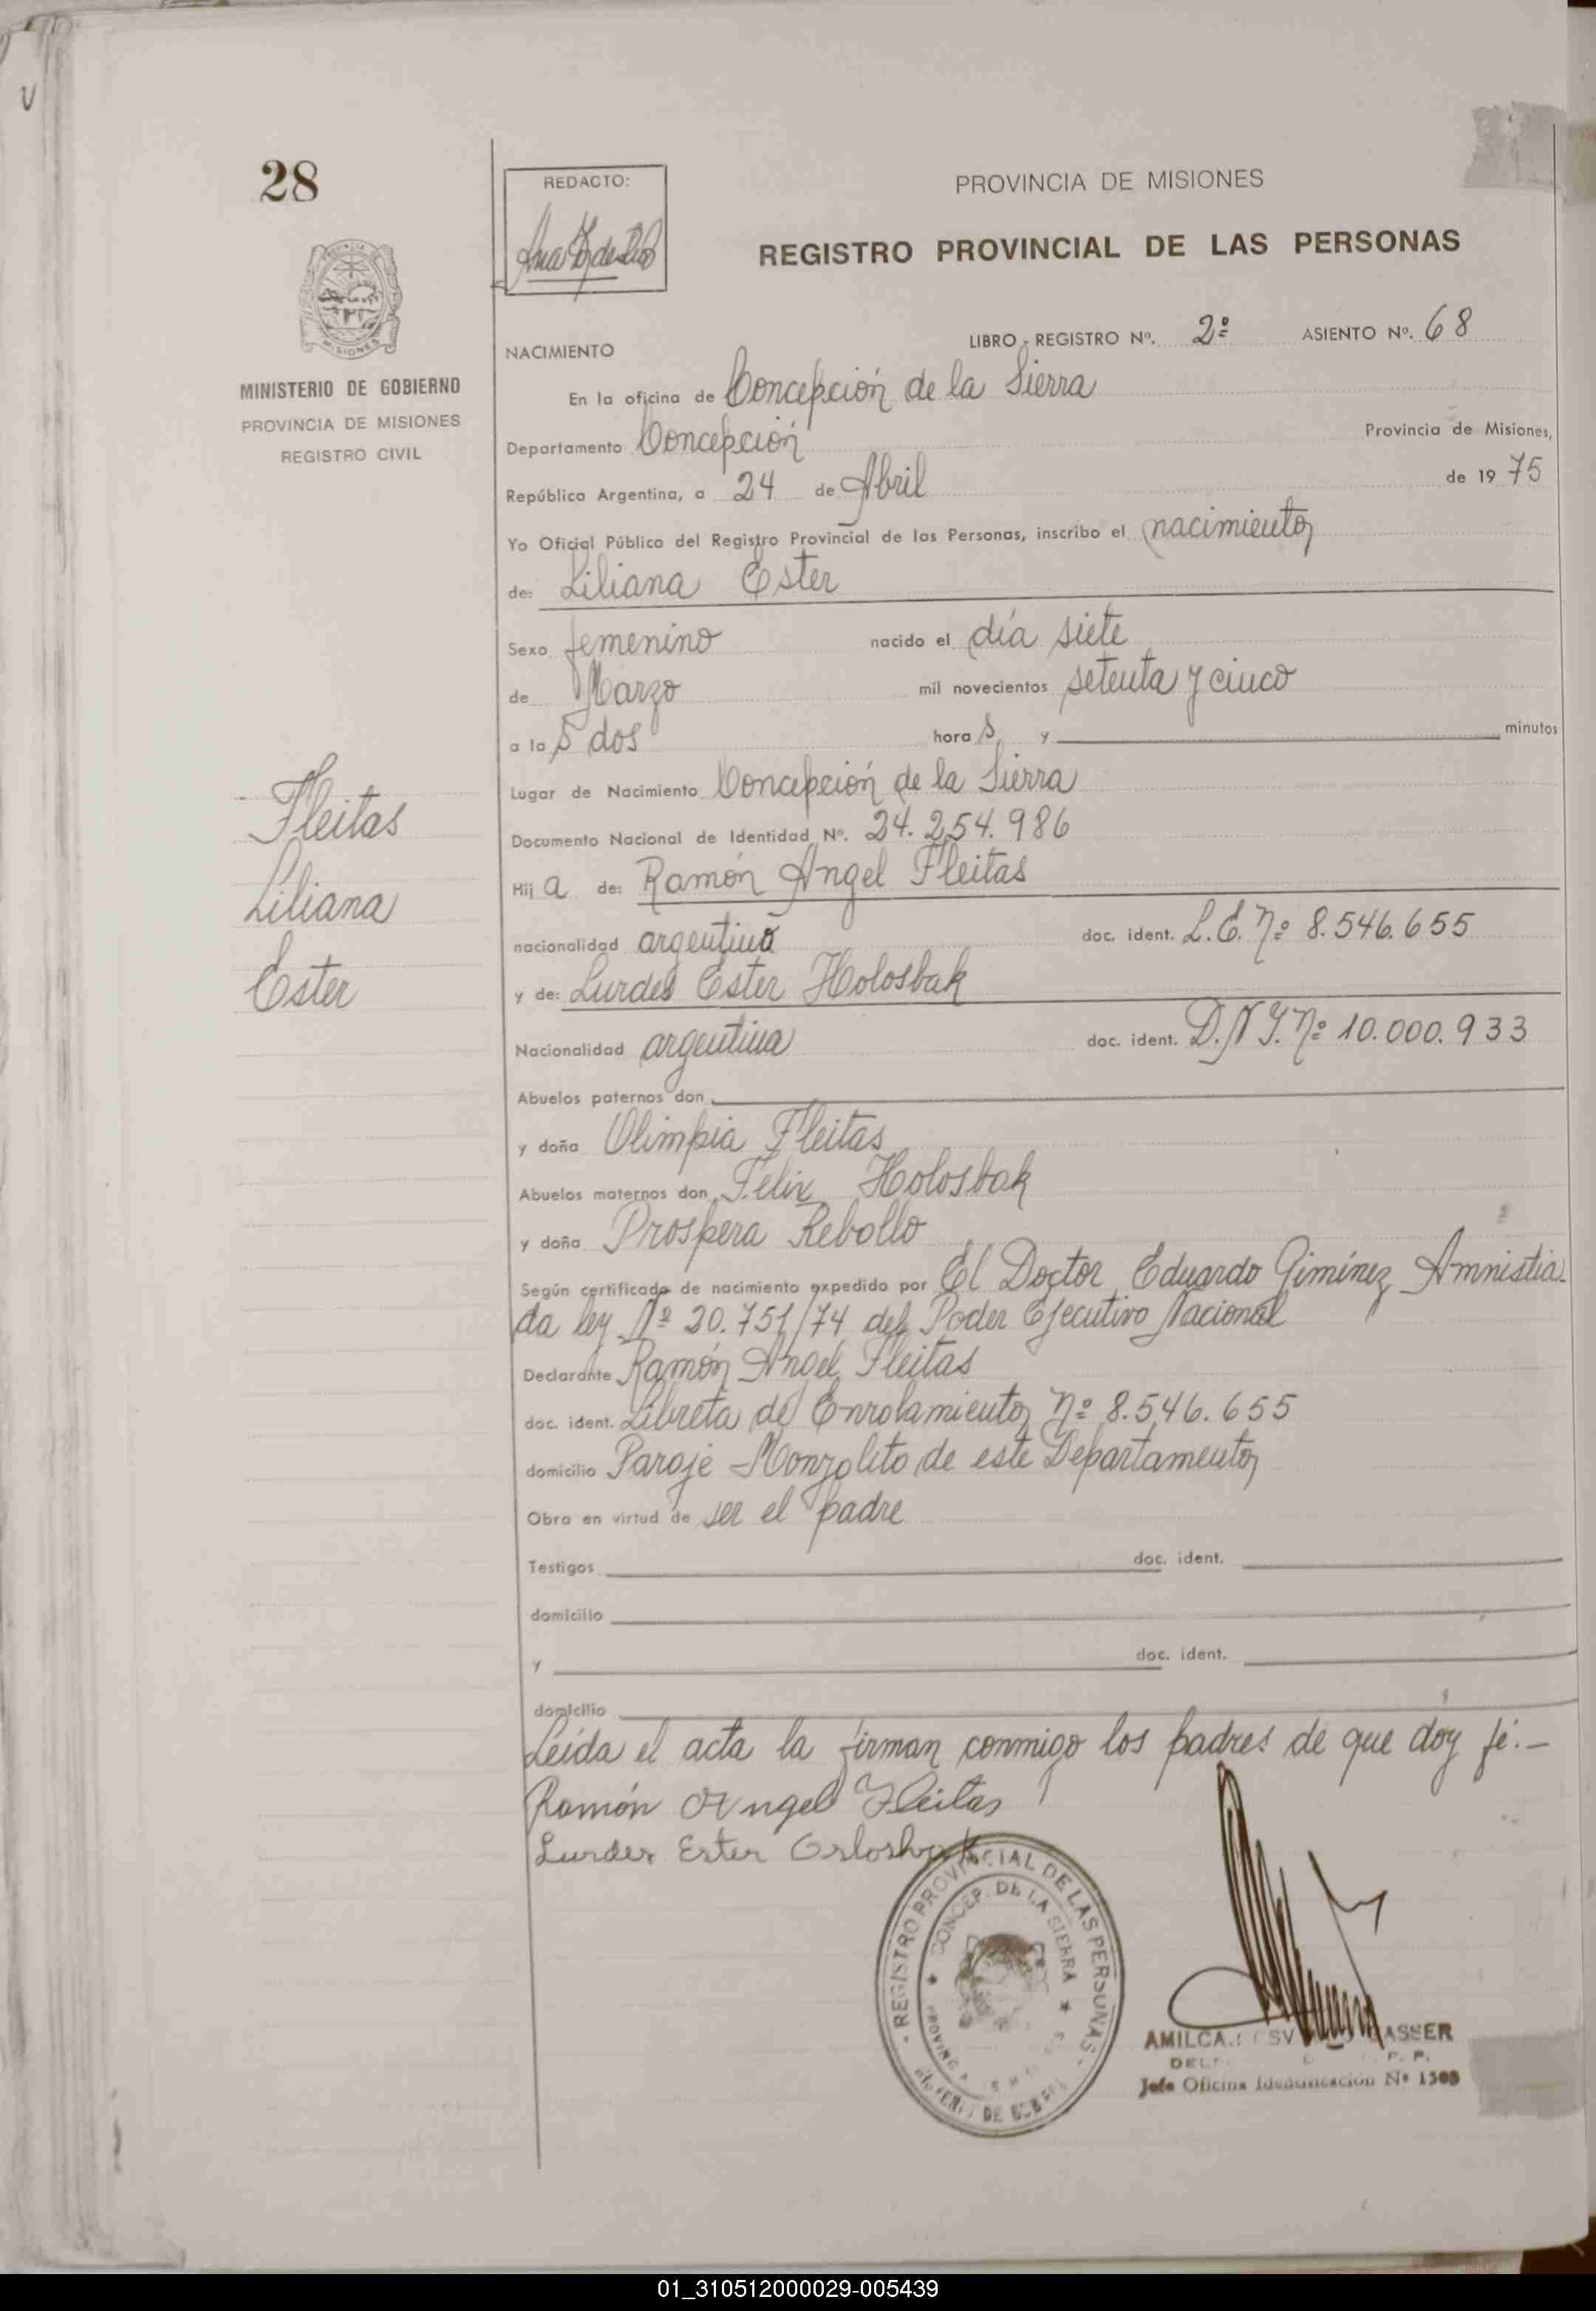 28
REDACTO:
PROVINCIA DE MISIONES
REGISTRO PROVINCIAL DE LAS PERSONAS
MISIONES
MINISTERIO DE GOBIERNO
PROVINCIA DE MISIONES
REGISTRO CIVIL
LIBRO - REGISTRO Nº. 2º ASIENTO Nº. 68
NACIMIENTO
En la oficina de Concepción de la Sierra
Departamento Concepción Provincia de Misiones,
República Argentina, a 24 de Abril de 1975
Yo Oficial Público del Registro Provincial de las Personas, inscribo el nacimiento
de: Liliana Ester
Sexo femenino nacido el día siete
de Marzo mil novecientos setenta y cinco
a las dos horas y minutos
Lugar de Nacimiento Concepción de la Sierra
Documento Nacional de Identidad Nº. 24.254.986
Hija de: Ramón Angel Fleitas
nacionalidad argentino doc. ident. L.E. Nº 8.546.655
y de: Lurdes Ester Holosbak
Nacionalidad argentina doc. ident. D.N.I. Nº 10.000.933
Abuelos paternos don
y doña Olimpia Fleitas
Abuelos maternos don Félix Holosbak
y doña Prospera Rebollo
Según certificado de nacimiento expedido por El Doctor Eduardo Giminez Amnistia-
da ley Nº 20.751/74 del Poder Ejecutivo Nacional
Declarante Ramón Angel Fleitas
doc. ident. Libreta de Enrolamiento Nº 8.546.655
domicilio Paraje Monzolito de este Departamento
Obra en virtud de ser el padre
Testigos doc. ident.
domicilio
y doc. ident.
domicilio
Leída el acta la firman conmigo los padres de que doy fé.-
Ramón Angel Fleitas
Lurdes Ester Oslosbak
Fleitas
Liliana
Ester
- REGISTRO PROVINCIAL DE LAS PERSONAS -
★ CONCEP. DE LA SIERRA ★
Jefe Oficina Identificación Nº 1508
01_310512000029-005439